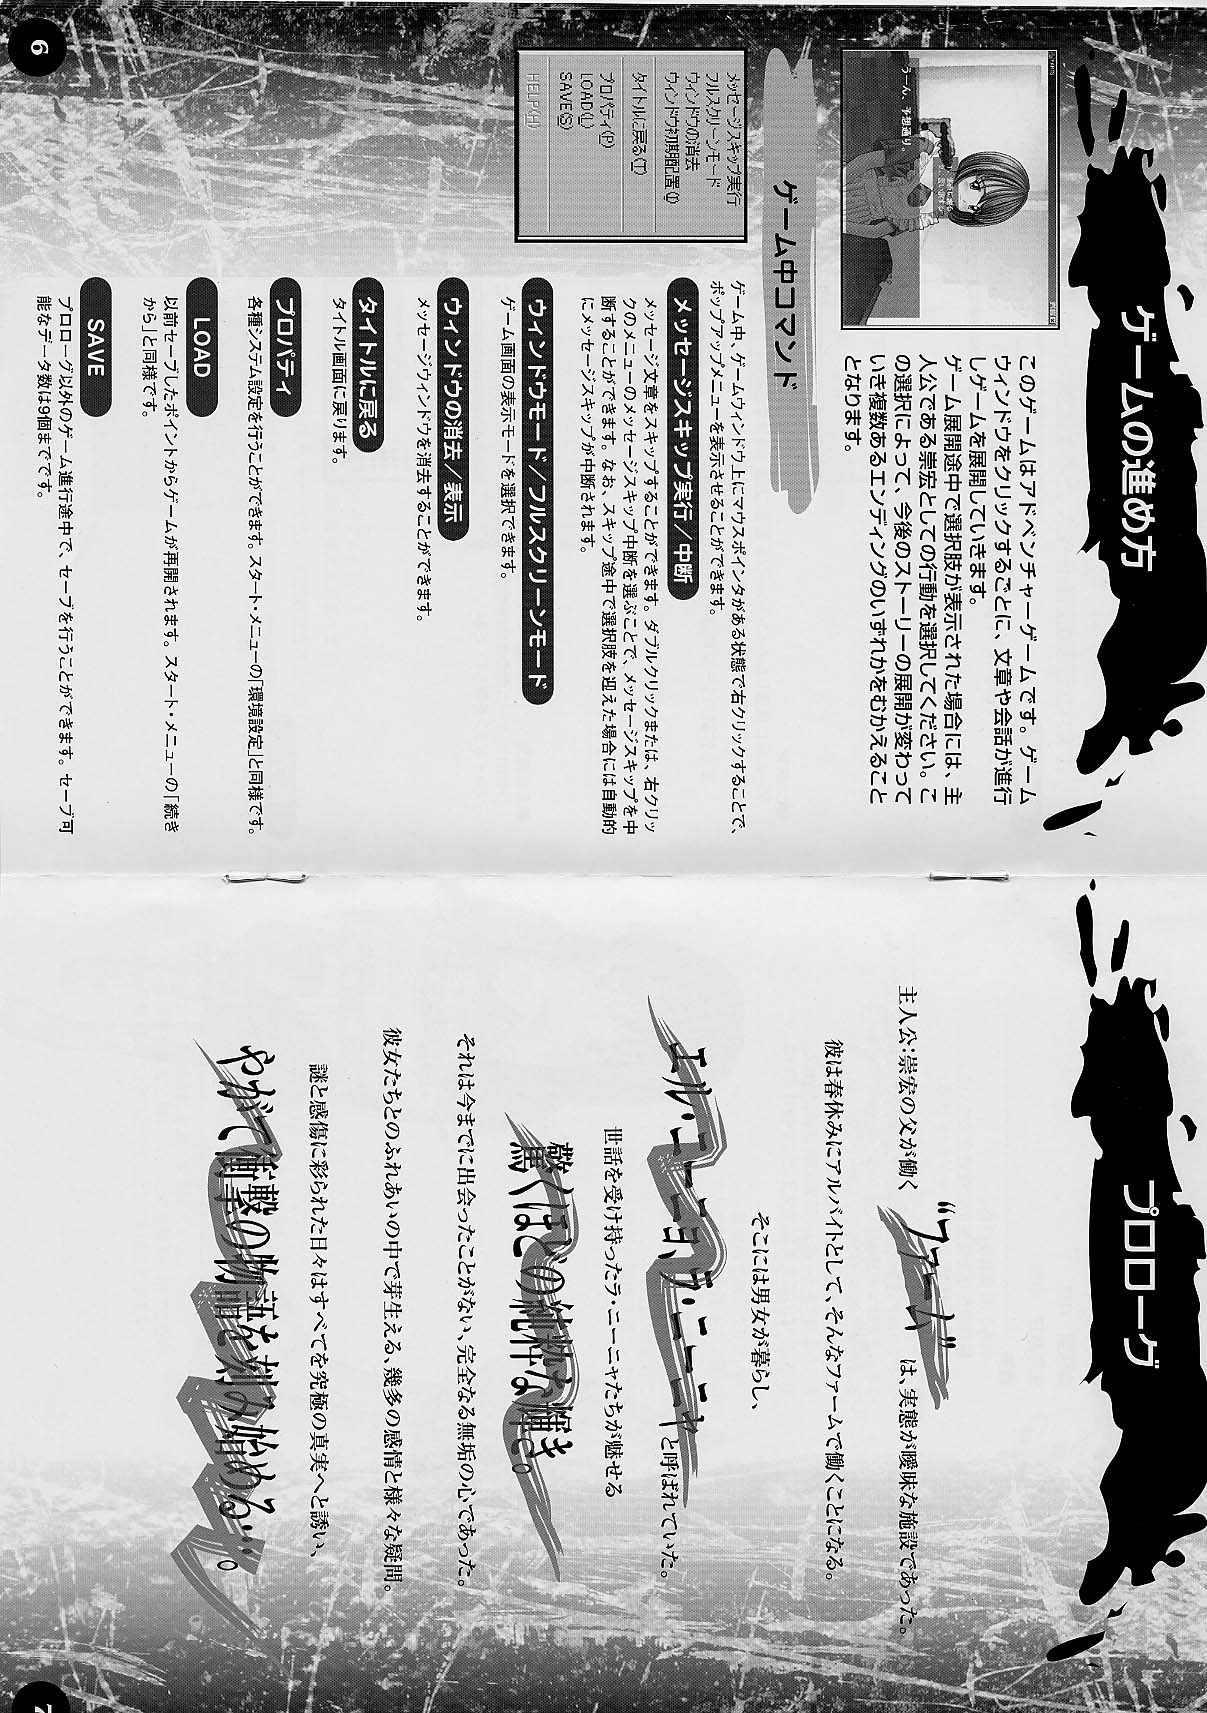 ゲームの進め方
うーん、予想通り。
このゲームはアドベンチャーゲームです。ゲーム
ウィンドウをクリックするごとに、文章や会話が進行
しゲームを展開していきます。
ゲーム展開途中で選択肢が表示された場合には、主
人公である崇宏としての行動を選択してください。こ
の選択によって、今後のストーリーの展開が変わって
いき複数あるエンディングのいずれかをむかえること
となります。
ゲーム中コマンド
メッセージスキップ実行
フルスクリーンモード
ウィンドウの消去
ウィンドウ初期配置(I)
タイトルに戻る(T)
プロパティ(P)
LOAD(L)
SAVE(S)
HELP(H)
ゲーム中、ゲームウィンドウ上にマウスポインタがある状態で右クリックすることで、
ポップアップメニューを表示させることができます。
メッセージスキップ実行/中断
メッセージ文章をスキップすることができます。ダブルクリックまたは、右クリッ
クのメニューのメッセージスキップ中断を選ぶことで、メッセージスキップを中
断することができます。なお、スキップ途中で選択肢を迎えた場合には自動的
にメッセージスキップが中断されます。
ウィンドウモード/フルスクリーンモード
ゲーム画面の表示モードを選択できます。
ウィンドウの消去/表示
メッセージウィンドウを消去することができます。
タイトルに戻る
タイトル画面に戻ります。
プロパティ
各種システム設定を行うことができます。スタート・メニューの「環境設定」と同様です。
LOAD
以前セーブしたポイントからゲームが再開されます。スタート・メニューの「続き
から」と同様です。
SAVE
プロローグ以外のゲーム進行途中で、セーブを行うことができます。セーブ可
能なデータ数は9個までです。
6
プロローグ
主人公・崇宏の父が働く“ファーム”は、実態が曖昧な施設であった。
彼は春休みにアルバイトとして、そんなファームで働くことになる。
そこには男女が暮らし、
エル・ニーニョ、ラ・ニーニャと呼ばれていた。
世話を受け持ったラ・ニーニャたちが魅せる
驚くほどの純粋な輝き。
それは今までに出会ったことがない、完全なる無垢の心であった。
彼女たちとのふれあいの中で芽生える、幾多の感情と様々な疑問。
謎と感傷に彩られた日々はすべてを究極の真実へと誘い、
やがて衝撃の物語を刻み始める…。
7